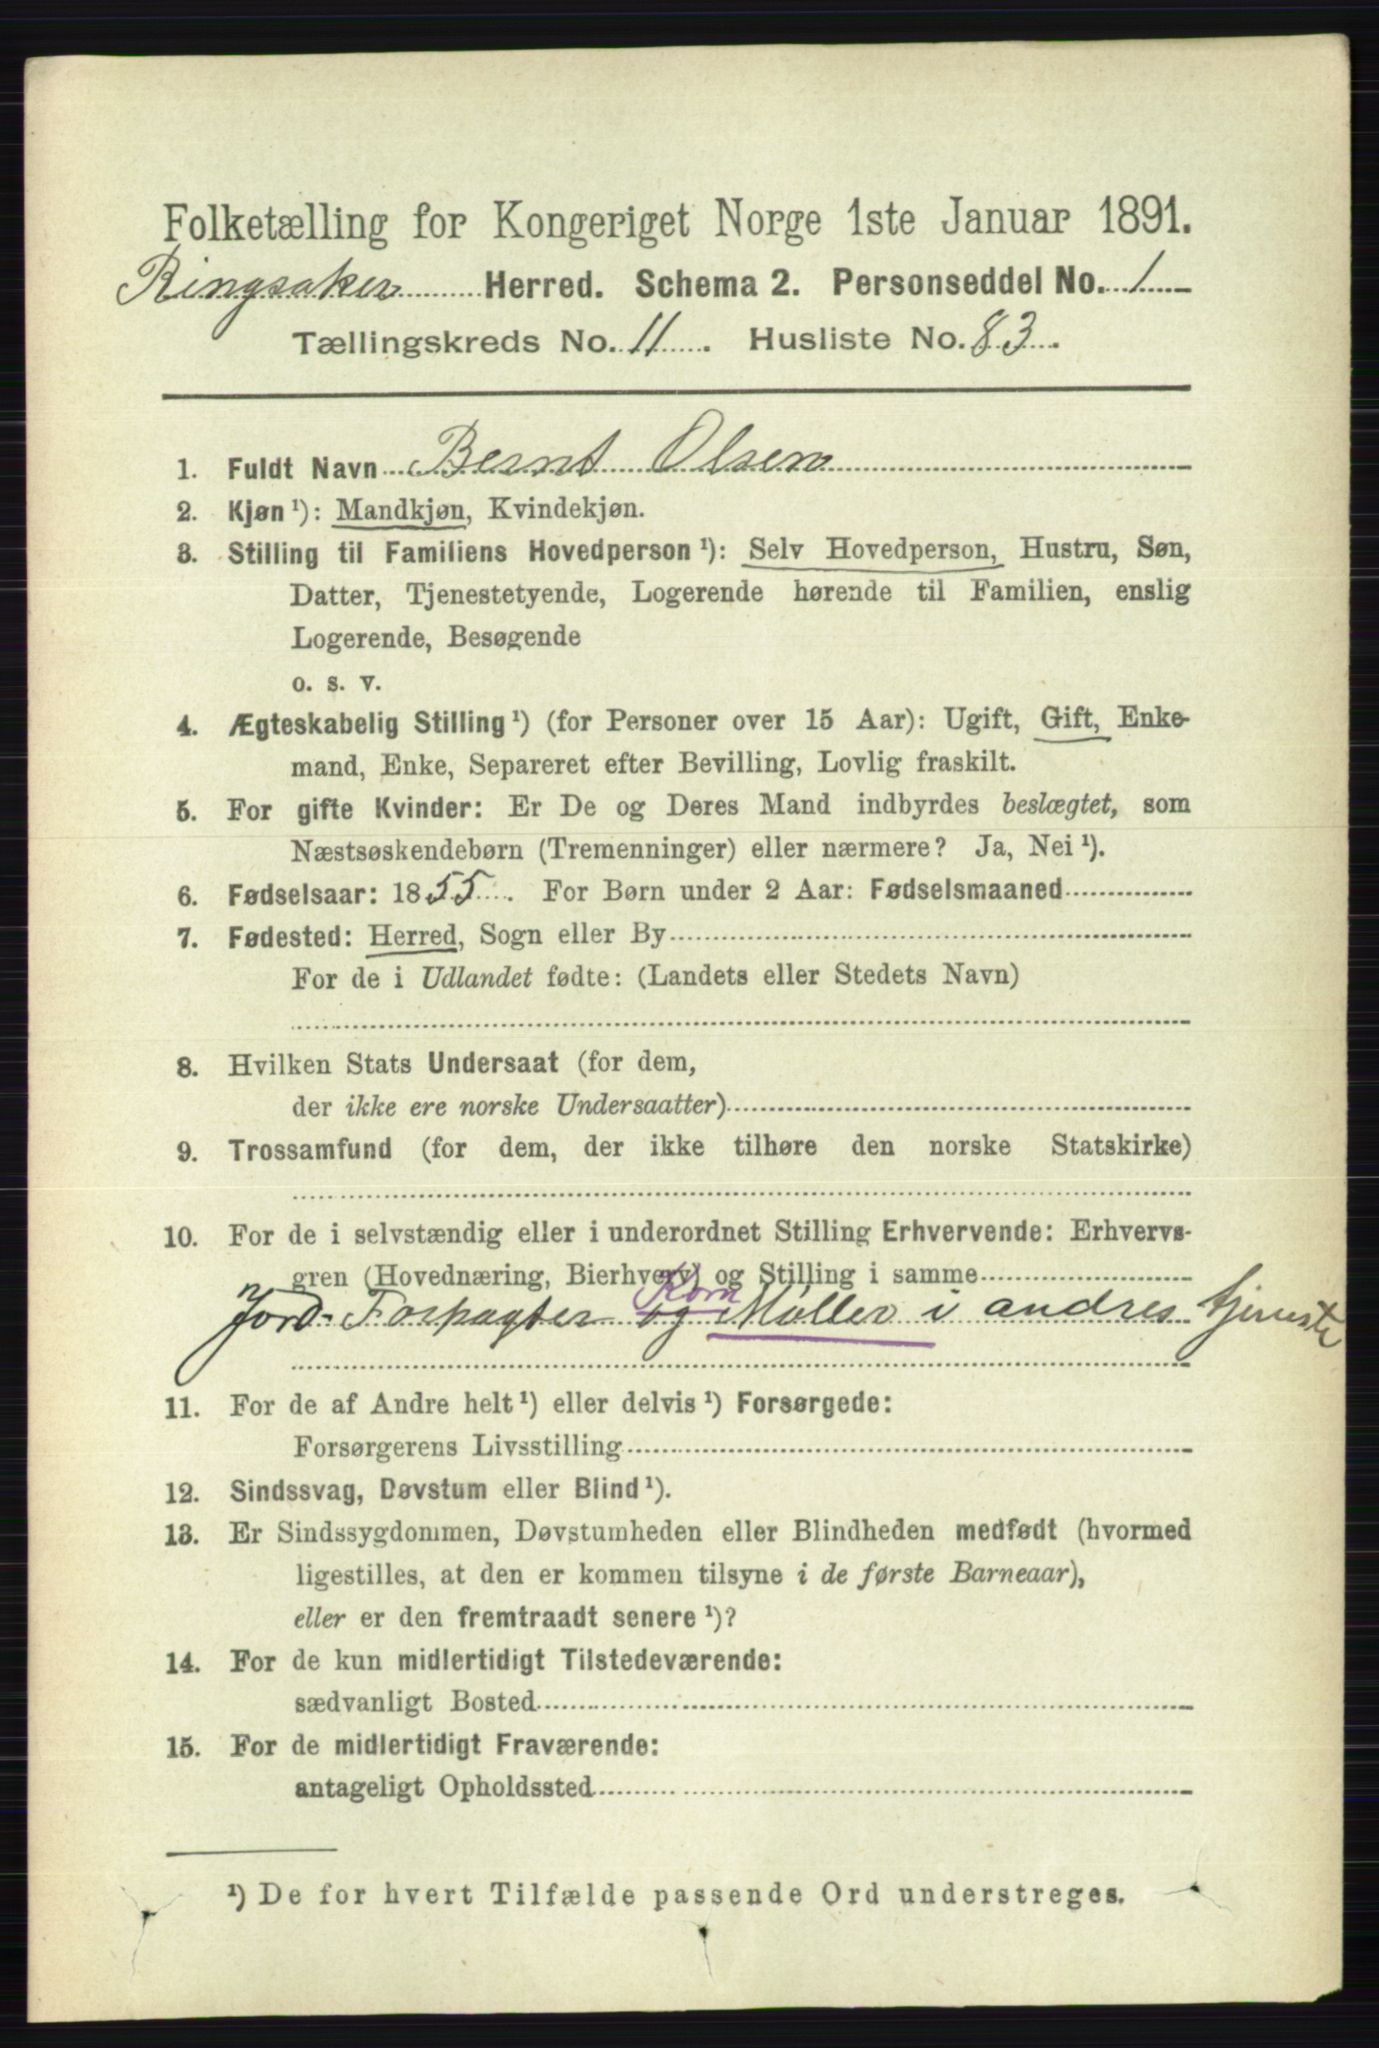 Folketælling for Kongeriget Norge 1ste Januar 1891.
Ringsaker Herred. Schema 2. Personseddel No. 1
Tællingskreds No. 11. Husliste No. 83.
1. Fuldt Navn Bernt Olsen
2. Kjøn ¹): Mandkjøn, Kvindekjøn.
3. Stilling til Familiens Hovedperson ¹): Selv Hovedperson, Hustru, Søn,
Datter, Tjenestetyende, Logerende hørende til Familien, enslig
Logerende, Besøgende
o. s. v.
4. Ægteskabelig Stilling ¹) (for Personer over 15 Aar): Ugift, Gift, Enke-
mand, Enke, Separeret efter Bevilling, Lovlig fraskilt.
5. For gifte Kvinder: Er De og Deres Mand indbyrdes beslægtet, som
Næstsøskendebørn (Tremenninger) eller nærmere? Ja, Nei ¹).
6. Fødselsaar: 1855. For Børn under 2 Aar: Fødselsmaaned
7. Fødested: Herred, Sogn eller By
For de i Udlandet fødte: (Landets eller Stedets Navn)
8. Hvilken Stats Undersaat (for dem,
der ikke ere norske Undersaatter)
9. Trossamfund (for dem, der ikke tilhøre den norske Statskirke)
10. For de i selvstændig eller i underordnet Stilling Erhvervende: Erhvervs-
gren (Hovednæring, Bierhverv) og Stilling i samme
Jord-Forpagter og Korn Møller i andres tjeneste
11. For de af Andre helt ¹) eller delvis ¹) Forsørgede:
Forsørgerens Livsstilling
12. Sindssvag, Døvstum eller Blind ¹).
13. Er Sindssygdommen, Døvstumheden eller Blindheden medfødt (hvormed
ligestilles, at den er kommen tilsyne i de første Barneaar),
eller er den fremtraadt senere ¹)?
14. For de kun midlertidigt Tilstedeværende:
sædvanligt Bosted
15. For de midlertidigt Fraværende:
antageligt Opholdssted
¹) De for hvert Tilfælde passende Ord understreges.